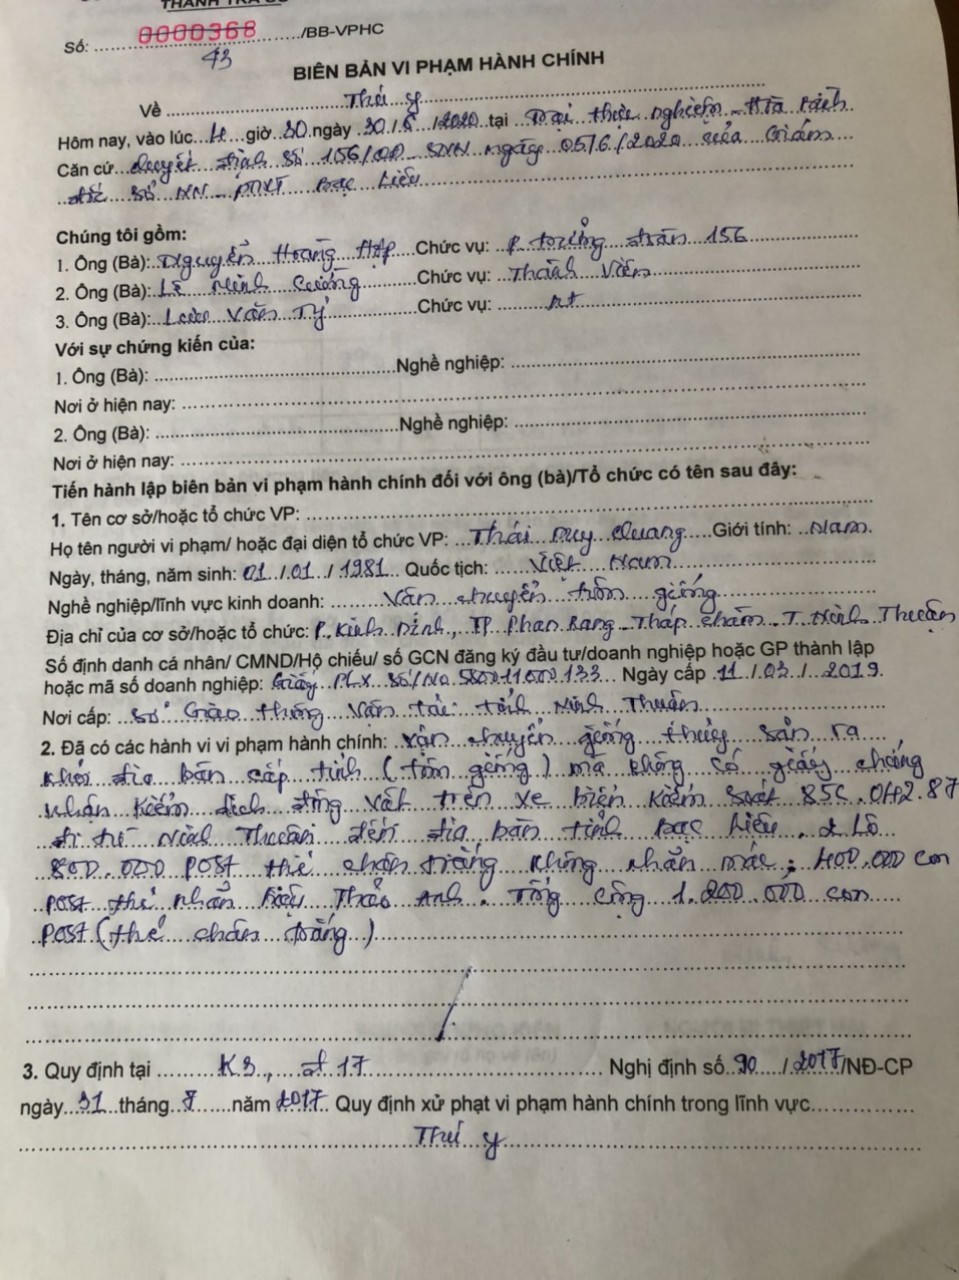 THANH TRA SỞ
Số: 0000368 /BB-VPHC
43
BIÊN BẢN VI PHẠM HÀNH CHÍNH
Về Thú y
Hôm nay, vào lúc 4 giờ 30 ngày 30/6/2020 tại Trại thực nghiệm
Căn cứ Quyết định Số 156/QĐ-SNN ngày 05/6/2020 của Giám
đốc Sở NN-PTNT Bạc Liêu
Chúng tôi gồm:
1. Ông (Bà): Nguyễn Hoàng Hợp Chức vụ: P. trưởng đoàn 156
2. Ông (Bà): Lê Minh Cường Chức vụ: Thành viên
3. Ông (Bà): Lưu Văn Tỷ Chức vụ: nt
Với sự chứng kiến của:
1. Ông (Bà): Nghề nghiệp:
Nơi ở hiện nay:
2. Ông (Bà): Nghề nghiệp:
Nơi ở hiện nay:
Tiến hành lập biên bản vi phạm hành chính đối với ông (bà)/Tổ chức có tên sau đây:
1. Tên cơ sở/hoặc tổ chức VP:
Họ tên người vi phạm/ hoặc đại diện tổ chức VP: Thái Duy Quang Giới tính: Nam
Ngày, tháng, năm sinh: 01/01/1981 Quốc tịch: Việt Nam
Nghề nghiệp/lĩnh vực kinh doanh: Vận chuyển tôm giống
Địa chỉ của cơ sở/hoặc tổ chức: P. Kinh Dinh, TP Phan Rang-Tháp chàm-T. Ninh Thuận
Số định danh cá nhân/ CMND/Hộ chiếu/ số GCN đăng ký đầu tư/doanh nghiệp hoặc GP thành lập
hoặc mã số doanh nghiệp: Giấy PLX Số/No Ngày cấp 11/03/2019.
Nơi cấp: Sở Giao thông Vận tải tỉnh Ninh Thuận
2. Đã có các hành vi vi phạm hành chính: vận chuyển giống thủy sản ra
khỏi địa bàn cấp tỉnh (tôm giống) mà không có giấy chứng
nhận kiểm dịch động vật trên xe biển kiểm soát 85C.042.87
đi từ Ninh Thuận đến địa bàn tỉnh Bạc Liêu. 2 Lô
800.000 POST thẻ chân trắng không nhãn mác; 400.000 con
POST thẻ nhãn hiệu Thảo Anh. Tổng cộng 1.200.000 con
POST (thẻ chân trắng)
3. Quy định tại K3, đ 17 Nghị định số 90/2017/NĐ-CP
ngày 31 tháng 7 năm 2017 Quy định xử phạt vi phạm hành chính trong lĩnh vực
Thú y